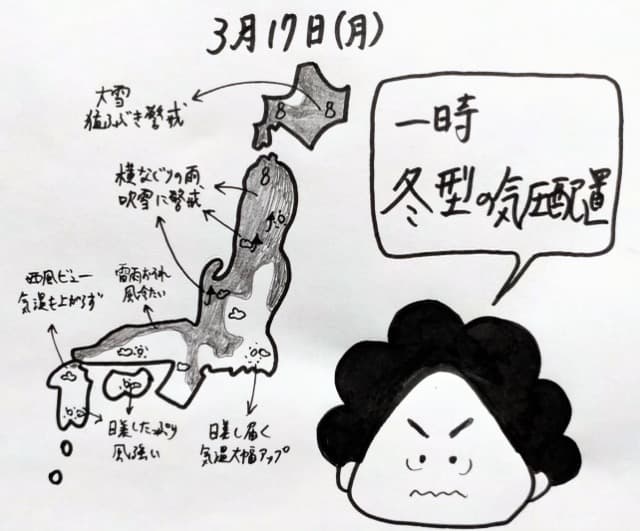 3月17日(月)
大雪
猛ふぶき警戒
一時
冬型の気圧配置
横なぐりの雨、
吹雪に警戒
西風ビュー
気温も上がらず
雷雨おそれ
風冷たい
日差したっぷり
風強い
日差し届く
気温大幅アップ